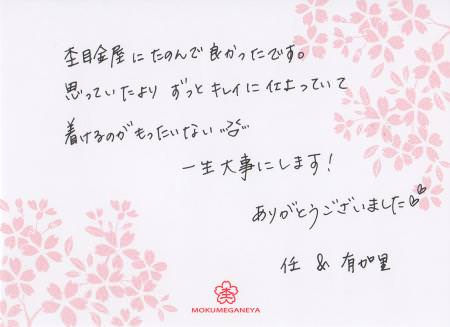 杢目金屋にたのんで良かったです。
思っていたより ずっと キレイに 仕上っていて
着けるのがもったいない
一生大事にします!
ありがとうございました♡♡
任 & 有加里
MOKUMEGANEYA